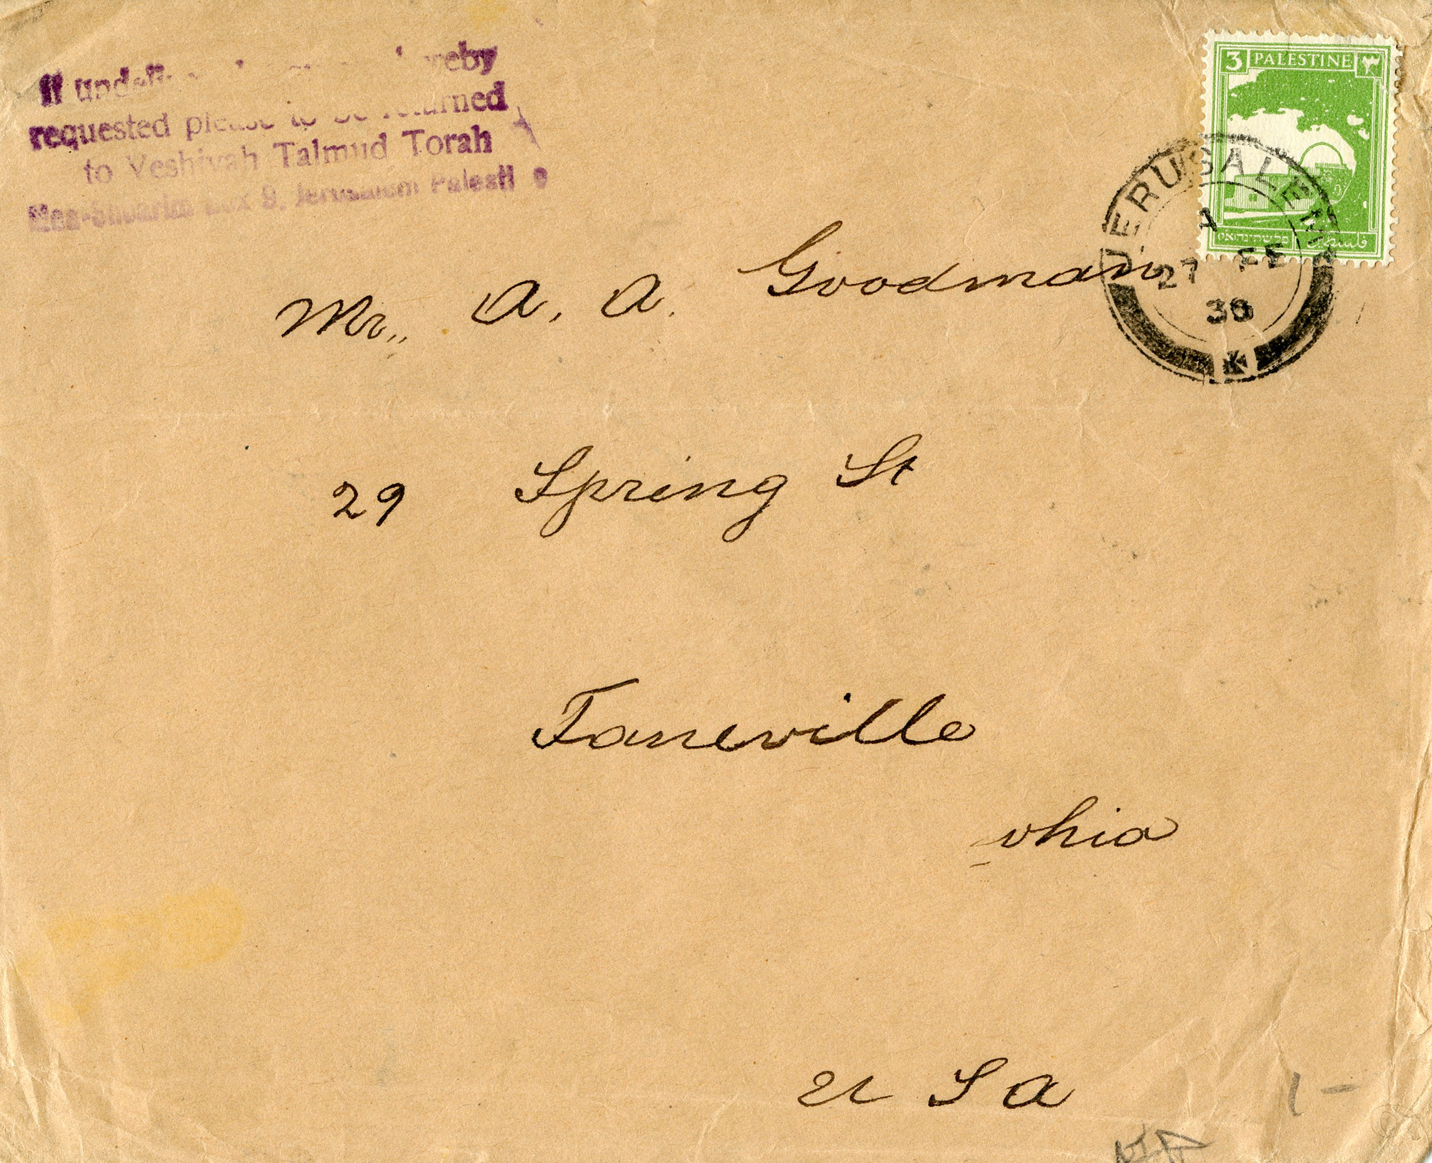 If undelivered hereby
requested please to be returned
to Yeshivah Talmud Torah
Mea-Shearim Box 9, Jerusalem Palestine
3 PALESTINE ٣
فلسطين פלשתינה א״י
JERUSALEM
A
27 FE
36
Mr., A. A. Goodman
29 Spring St
Faneville
ohio
U S a
1 -